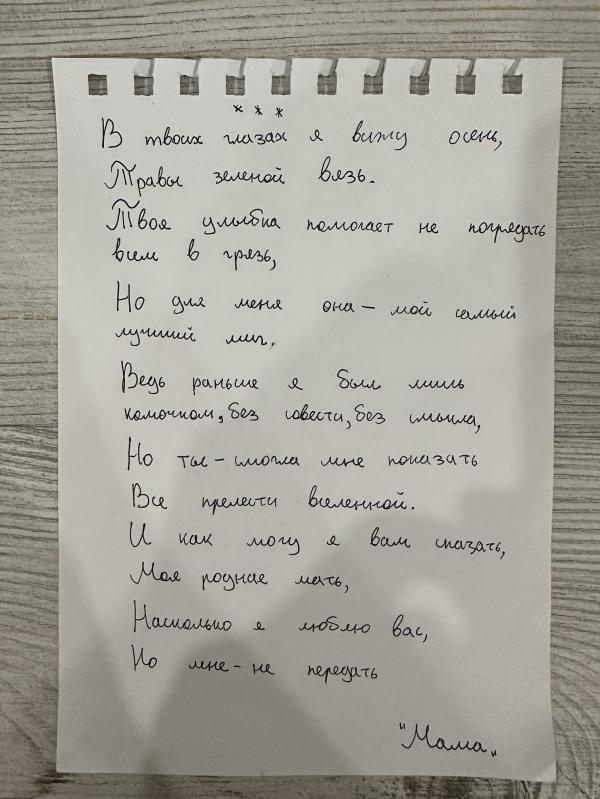 * * *
В твоих глазах я вижу осень,
Травы зеленой вязь.
Твоя улыбка помогает не погрядать
всем в грязь,
Но для меня она – мой самый
лучший миг.
Ведь раньше я был лишь
комочком, без совести, без смысла,
Но ты – смогла мне показать
Все прелести вселенной.
И как могу я вам сказать,
Моя родная мать,
Насколько я люблю вас,
Но мне – не передать
"Мама"